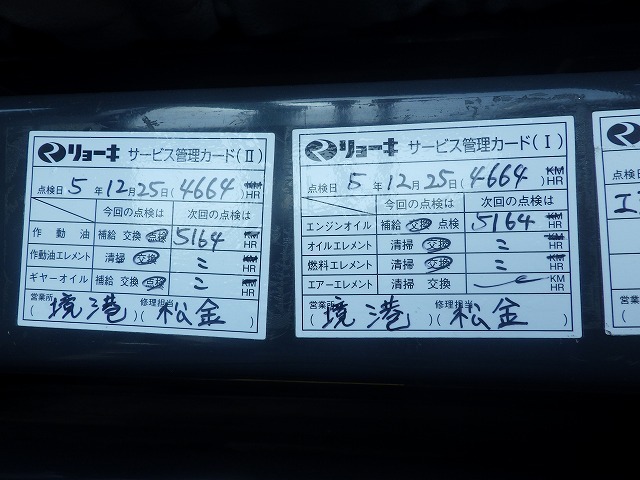 リョーキ サービス管理カード(Ⅱ)
点検日 5 年 12 月 25 日 ( 4664 ) HR
今回の点検は 次回の点検は
作動油 補給 交換 点検 5164 HR
作動油エレメント 清掃 交換 〃 HR
ギヤーオイル 補給 交換 点検 〃 HR
営業所 修理担当
( 境港 )( 松金 )
リョーキ サービス管理カード(Ⅰ)
点検日 5 年 12 月 25 日 ( 4664 ) KM HR
今回の点検は 次回の点検は
エンジンオイル 補給 交換 点検 5164 KM HR
オイルエレメント 清掃 交換 〃 HR
燃料エレメント 清掃 交換 〃 HR
エアーエレメント 清掃 交換 KM HR
営業所 修理担当
( 境港 )( 松金 )
点検日